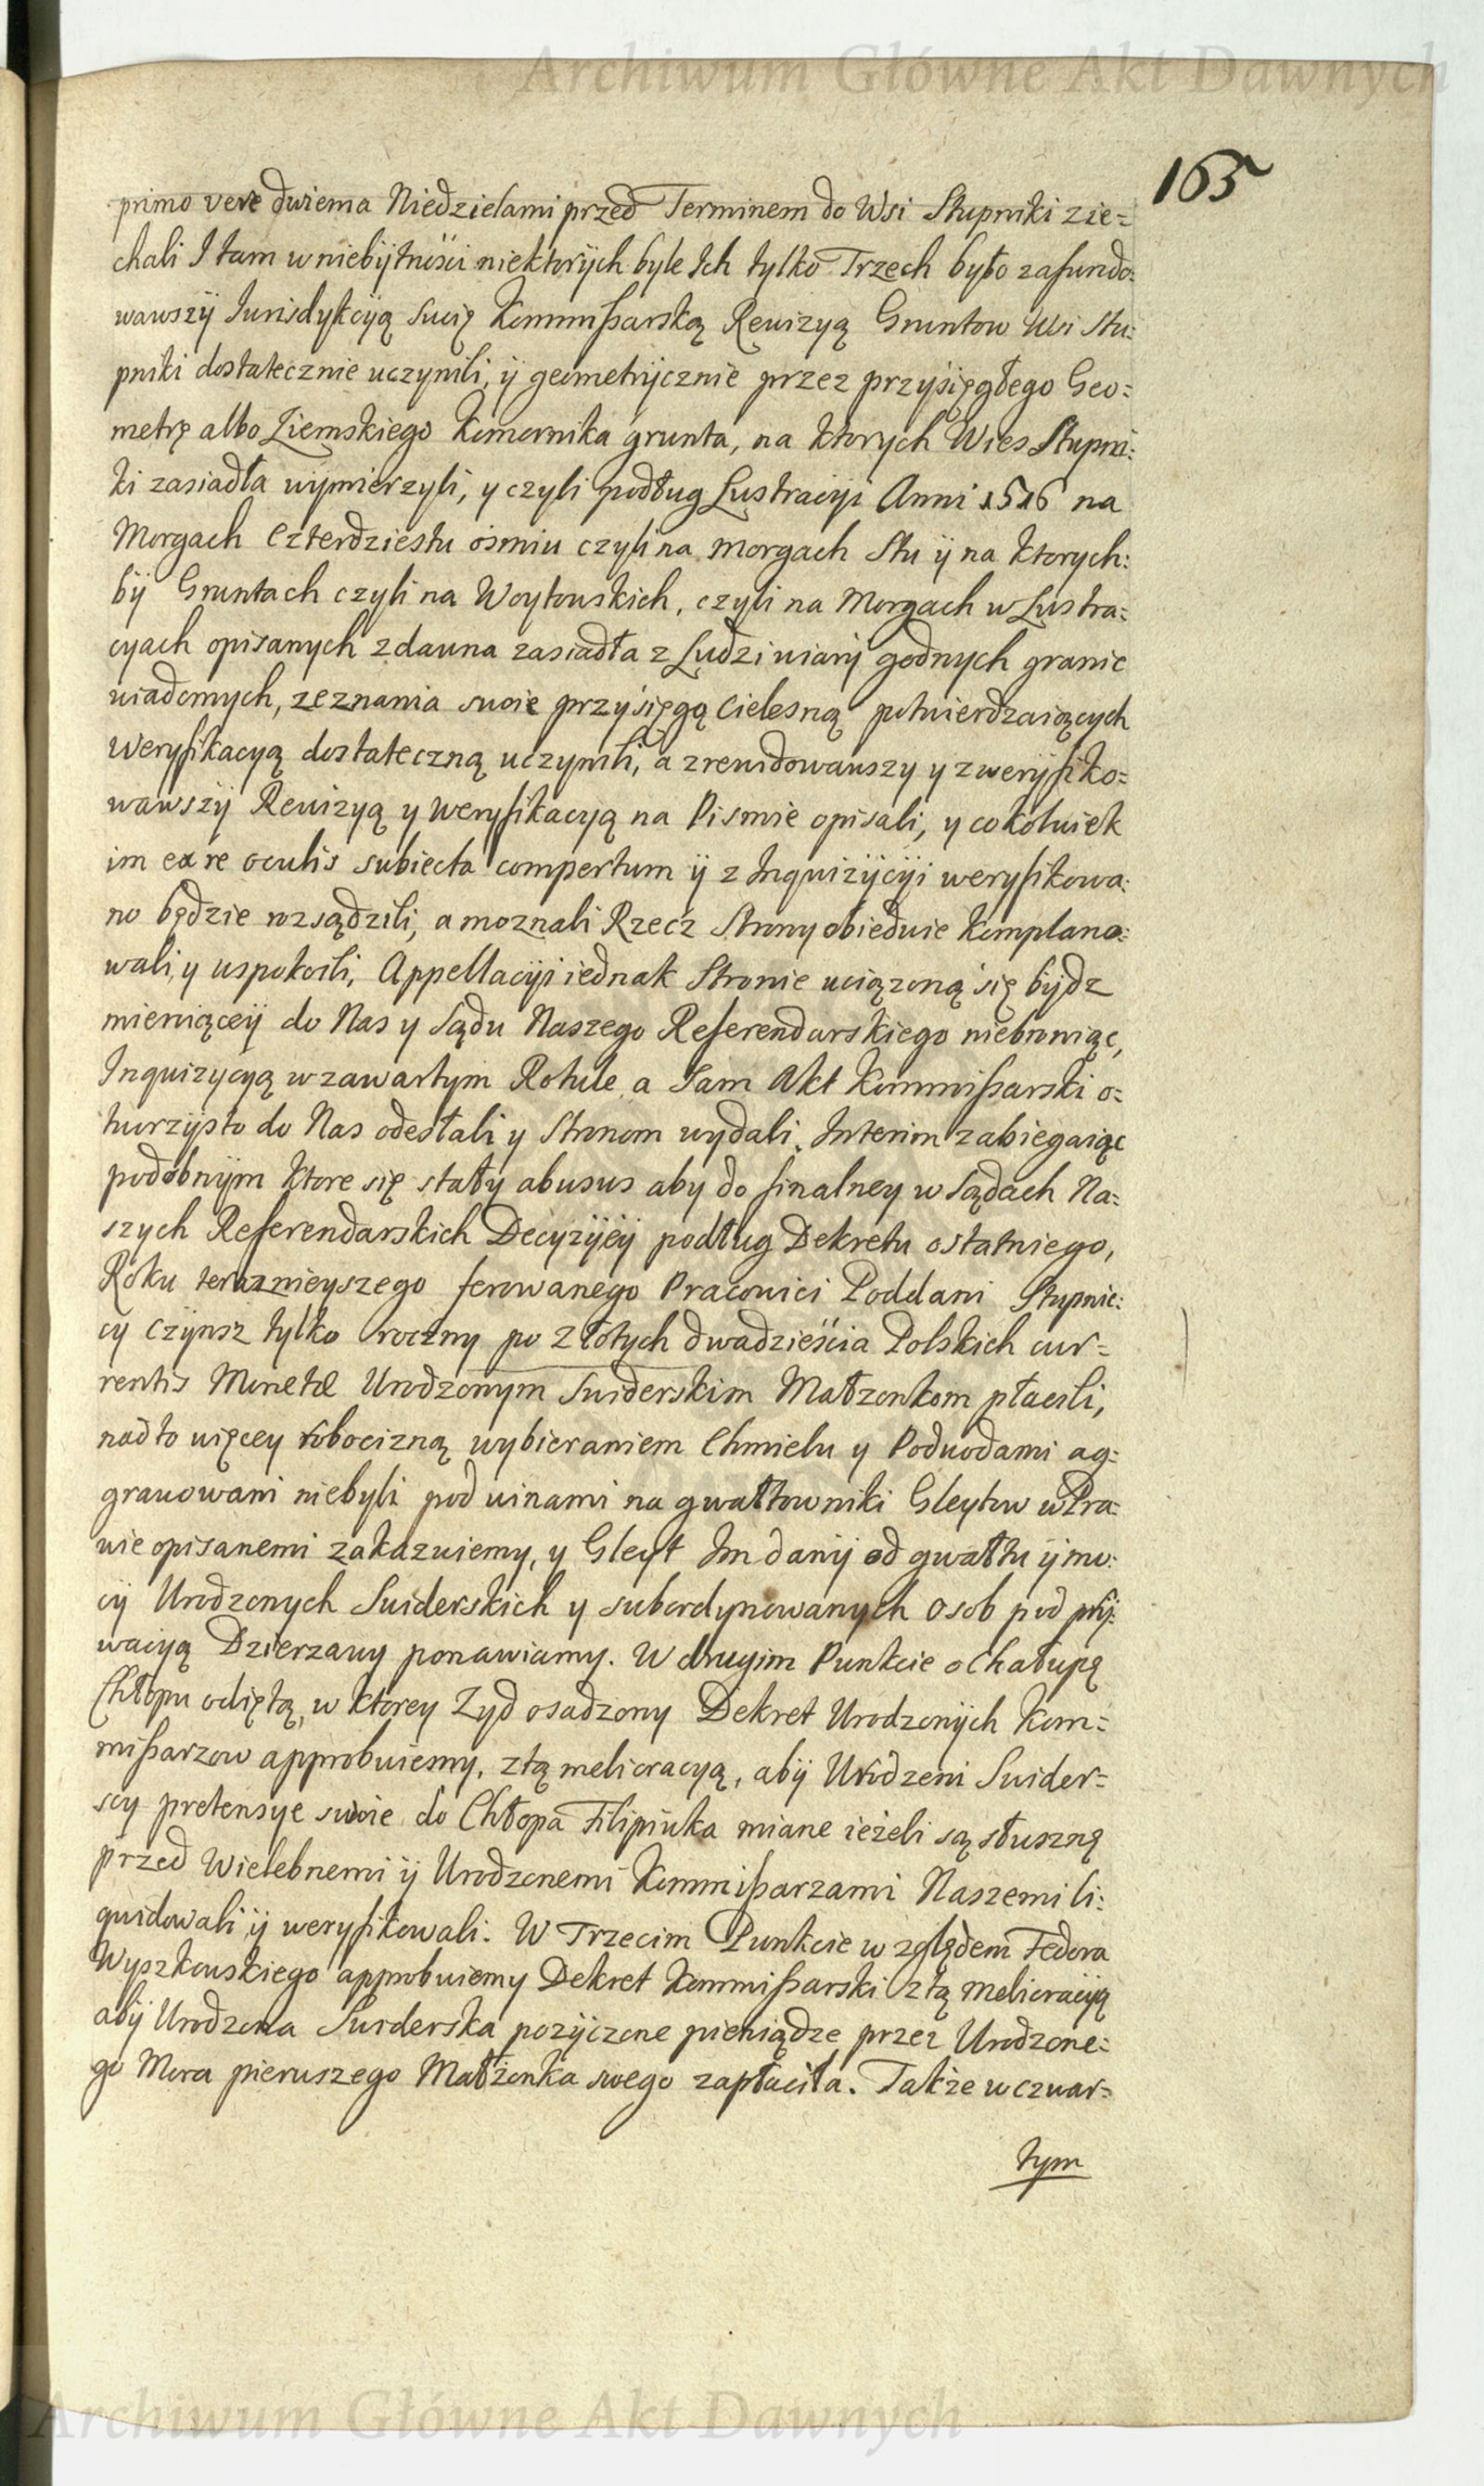 Archiwum Główne Akt Dawnych
165
primo vere dwiema Niedzielami przed Terminem do Wsi Stupniki zie=
chali I tam w niebÿtnosci niektorÿch byle Ich tylko Trzech było zafundo=
wawszÿ Iurisdykcÿą swoię Kommissarską Rewizyą Gruntow Wsi Stu=
pniki dostatecznie uczynili, ÿ geometrÿcznie przez przysięgłego Geo=
metrę albo Ziemskiego Komornika grunta, na ktorych Wies Stupni=
ki zasiadła wymierzyli, y czyli podług Lustracyi Anni 1516 na
Morgach Czterdziestu osmiu czyli na morgach Stu ÿ na ktorych=
bÿ Gruntach czyli na Woytowskich, czyli na Morgach w Lustra=
cyach opisanych zdawna zasiadła z Ludzi wiary godnych granic
wiadomych, zeznania swoie przysięgą Cielesną potwierdzaiących
weryfikacyą dostateczną uczynili, a zrewidowawszy y zweryfiko=
wawszÿ Rewizyą y weryfikacyą na Pismie opisali, y cokolwiek
im ex re oculis subiecta compertum ÿ z Inquizÿcÿi weryfikowa=
no będzie rozsądzili, a moznali Rzecz Strony obiedwie komplano=
wali, y uspokoili, Appellacÿi iednak Stronie uciązoną się bÿdz
mieniącey do Nas y Sądu Naszego Referendarskiego niebroniąc,
Inquizycyą w zawartym Rotule a Sam Akt Kommissarski o=
tworzÿsto do Nas odesłali y Stronom wydali. Interim zabiegaiąc
podobnÿm ktore się stały abusus aby do finalney w Sądach Na=
szych Referendarskich Decyzÿey podług Dekretu ostatniego,
Roku teraznieyszego ferowanego Pracowici Poddani Stupnic=
cy czynsz tylko roczny po Złotych dwadzieścia Polskich cur=
rentis Monetæ Urodzonym Swiderskim Małzonkom płacili,
nadto więcey robocizną wybieraniem Chmielu y Podwodami ag=
grawowani niebyli pod winami na gwałtowniki Gleytow w Pra=
wie opisanemi zakazuiemy, y Gleyt Im danÿ od gwałtu ÿ mo=
cÿ Urodzonych Swiderskich y subordynowanych Osob pod prÿ=
wacyą Dzierzawy ponawiamy. W drugim Punkcie o Chałupę
Chłopu odiętą, w ktorey Zyd osadzony Dekret Urodzonÿch Kom=
missarzow approbuiemy, z tą melioracyą, abÿ Urodzeni Swider=
scy pretensye swoie do Chłopa Filipiuka miane ieżeli są słuszną
przed Wielebnemi ÿ Urodzonemi Kommissarzami Naszemi li=
quidowali, ÿ weryfikowali. W Trzecim Punkcie względem Fedora
Wyszkowskiego approbuiemy Dekret Kommissarski z tą melioracÿą
abÿ Urodzona Swiderska pozÿczone pieniądze przez Urodzone=
go Mora pierwszego Małżonka swego zapłaciła. Także w czwar=
tym
Archiwum Główne Akt Dawnych